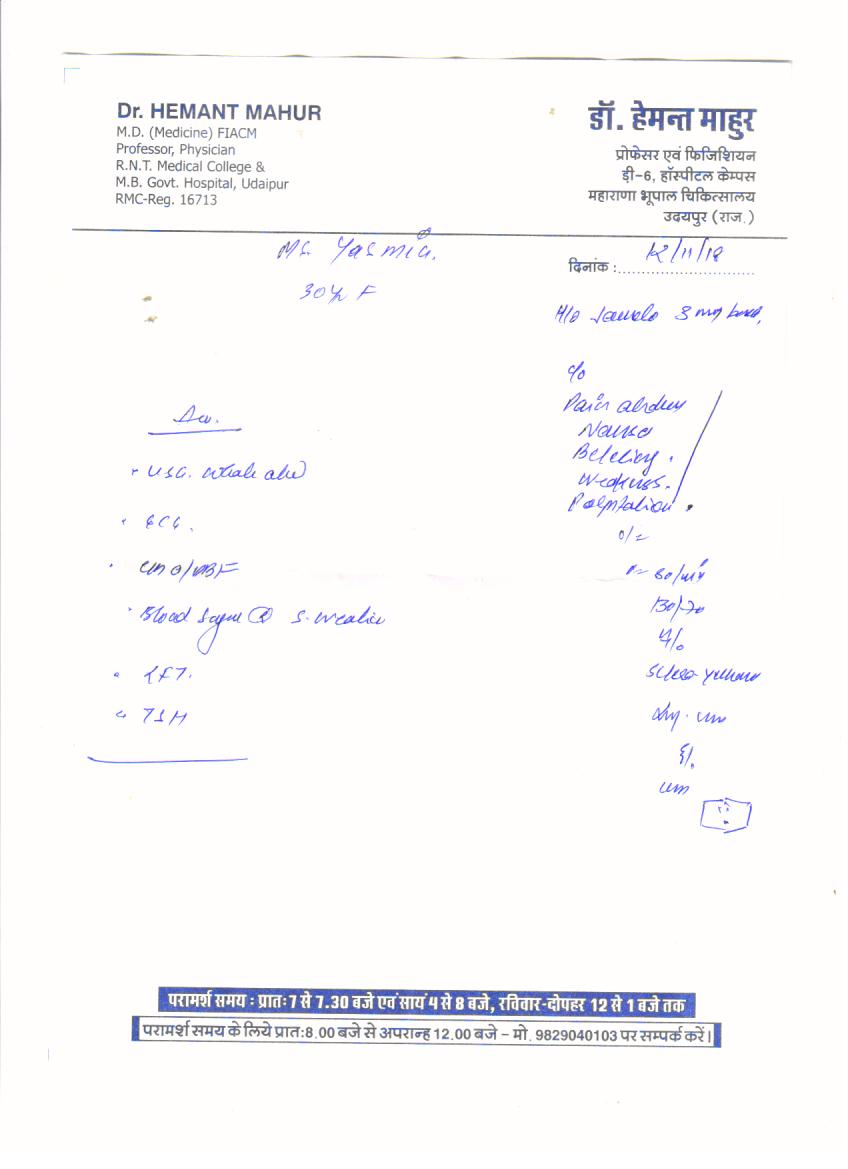 Dr. HEMANT MAHUR
M.D. (Medicine) FIACM
Professor, Physician
R.N.T. Medical College &
M.B. Govt. Hospital, Udaipur
RMC-Reg. 16713
डॉ. हेमन्त माहुर
प्रोफेसर एवं फिजिशियन
डी-6, हॉस्पीटल केम्पस
महाराणा भूपाल चिकित्सालय
उदयपुर (राज.)
Ms. Yasmin.
दिनांक : 12/11/18
30 Yr F
H/o 3
c/o
Pain
Nausea
Belching.
Weakness.
Palpitation.
o/e
P= 80/min
130/70
Sclera
USG. whole abd
ECG.
Blood Sugar R
LFT.
TSH
परामर्श समय : प्रातः 7 से 7.30 बजे एवं सायं 4 से 8 बजे, रविवार-दोपहर 12 से 1 बजे तक
परामर्श समय के लिये प्रातः 8.00 बजे से अपरान्ह 12.00 बजे – मो. 9829040103 पर सम्पर्क करें।